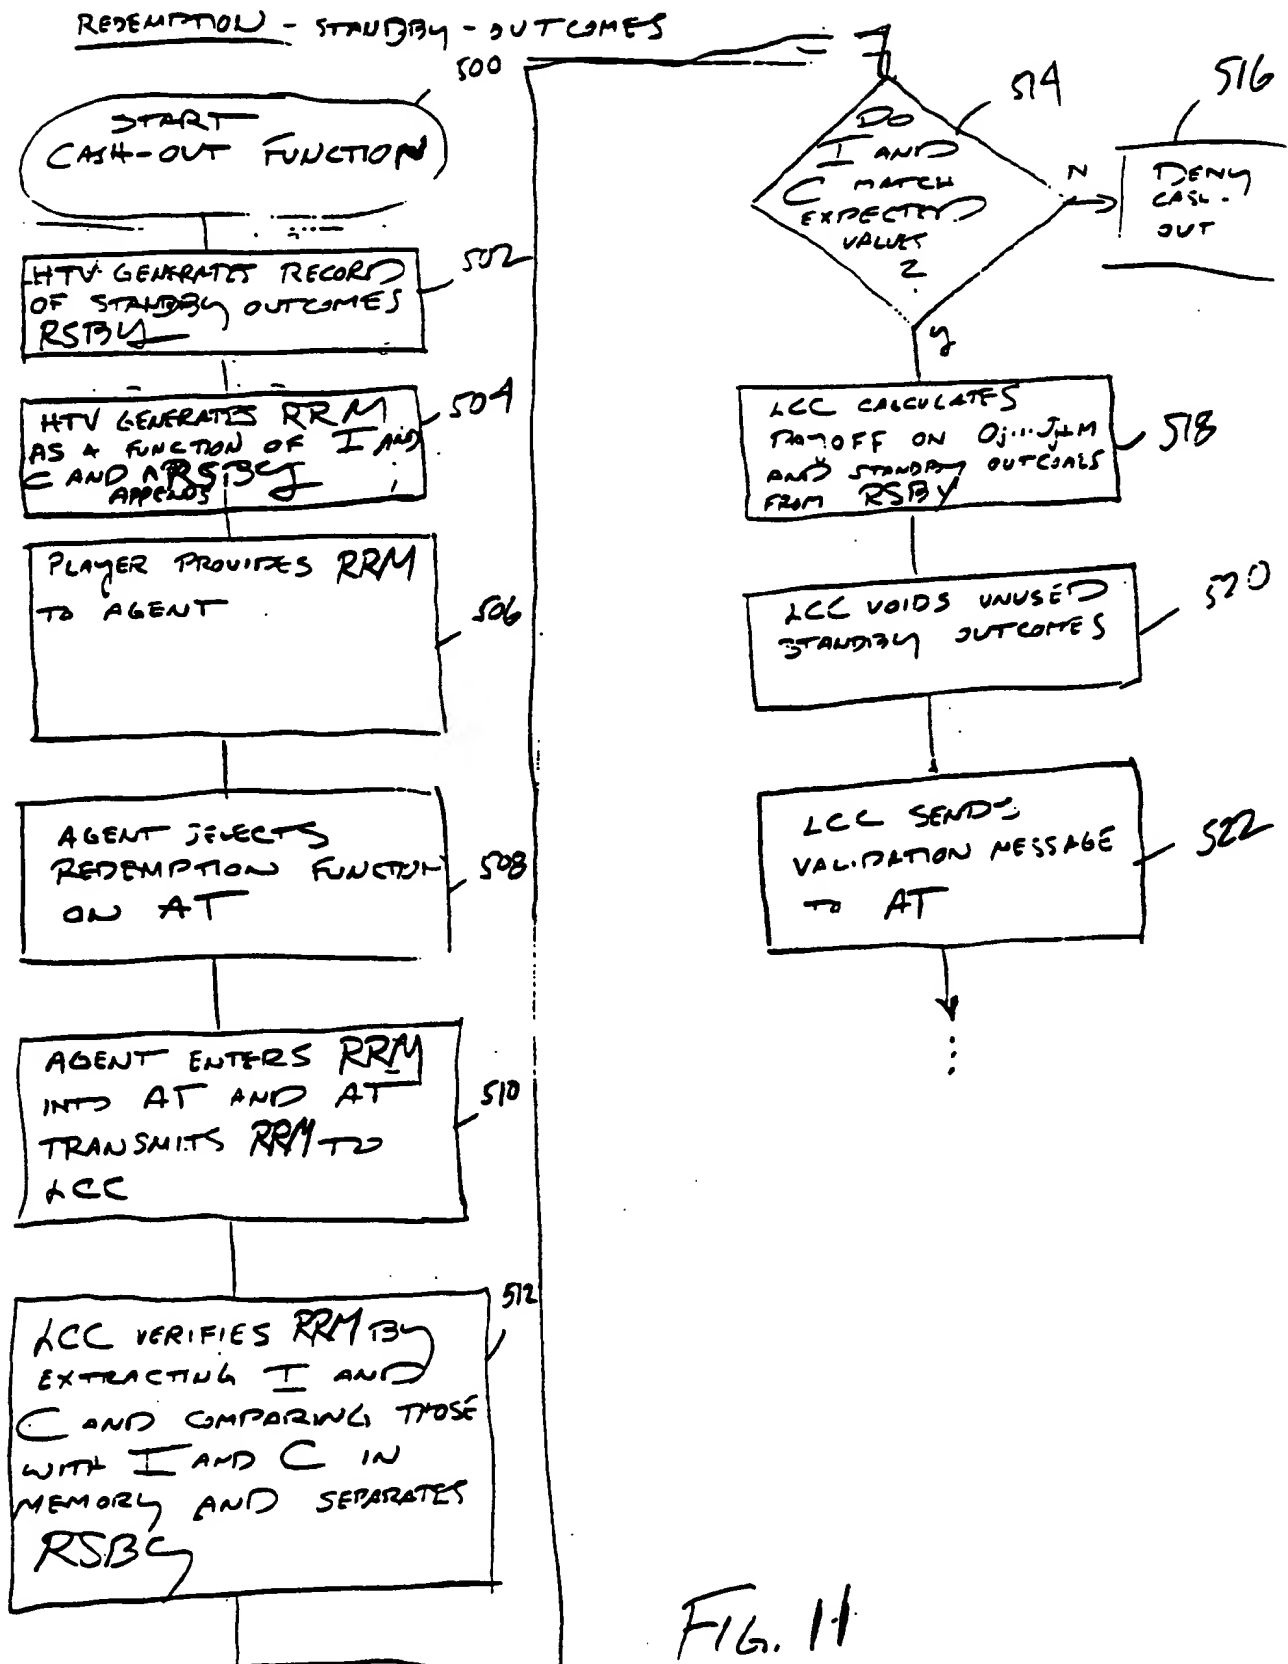 REDEMPTION - STANDBY - OUTCOMES
500
START
CASH-OUT FUNCTION
502
HTV GENERATES RECORD
OF STANDBY OUTCOMES
RSBY
504
HTV GENERATES RRM
AS A FUNCTION OF I AND
C AND APPENDS RSBY
PLAYER PROVIDES RRM
TO AGENT
506
AGENT SELECTS
REDEMPTION FUNCTION
ON AT
508
AGENT ENTERS RRM
INTO AT AND AT
TRANSMITS RRM TO
LCC
510
512
LCC VERIFIES RRM BY
EXTRACTING I AND
C AND COMPARING THOSE
WITH I AND C IN
MEMORY AND SEPARATES
RSBY
514
DO
I AND
C MATCH
EXPECTED
VALUES
?
N
516
DENY
CASH-
OUT
Y
LCC CALCULATES
PAYOFF ON Oj...
AND STANDBY OUTCOMES
FROM RSBY
518
LCC VOIDS UNUSED
STANDBY OUTCOMES
520
LCC SENDS
VALIDATION MESSAGE
TO AT
522
FIG. 11